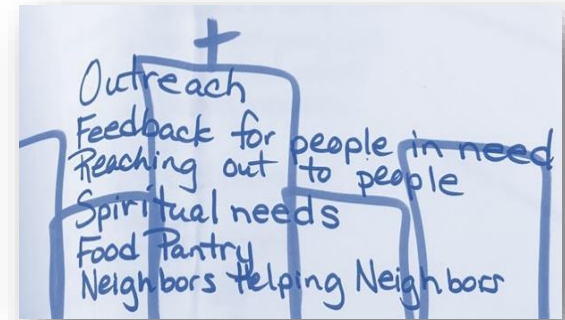 Outreach
Feedback for people in need
Reaching out to people
Spiritual needs
Food Pantry
Neighbors Helping Neighbors